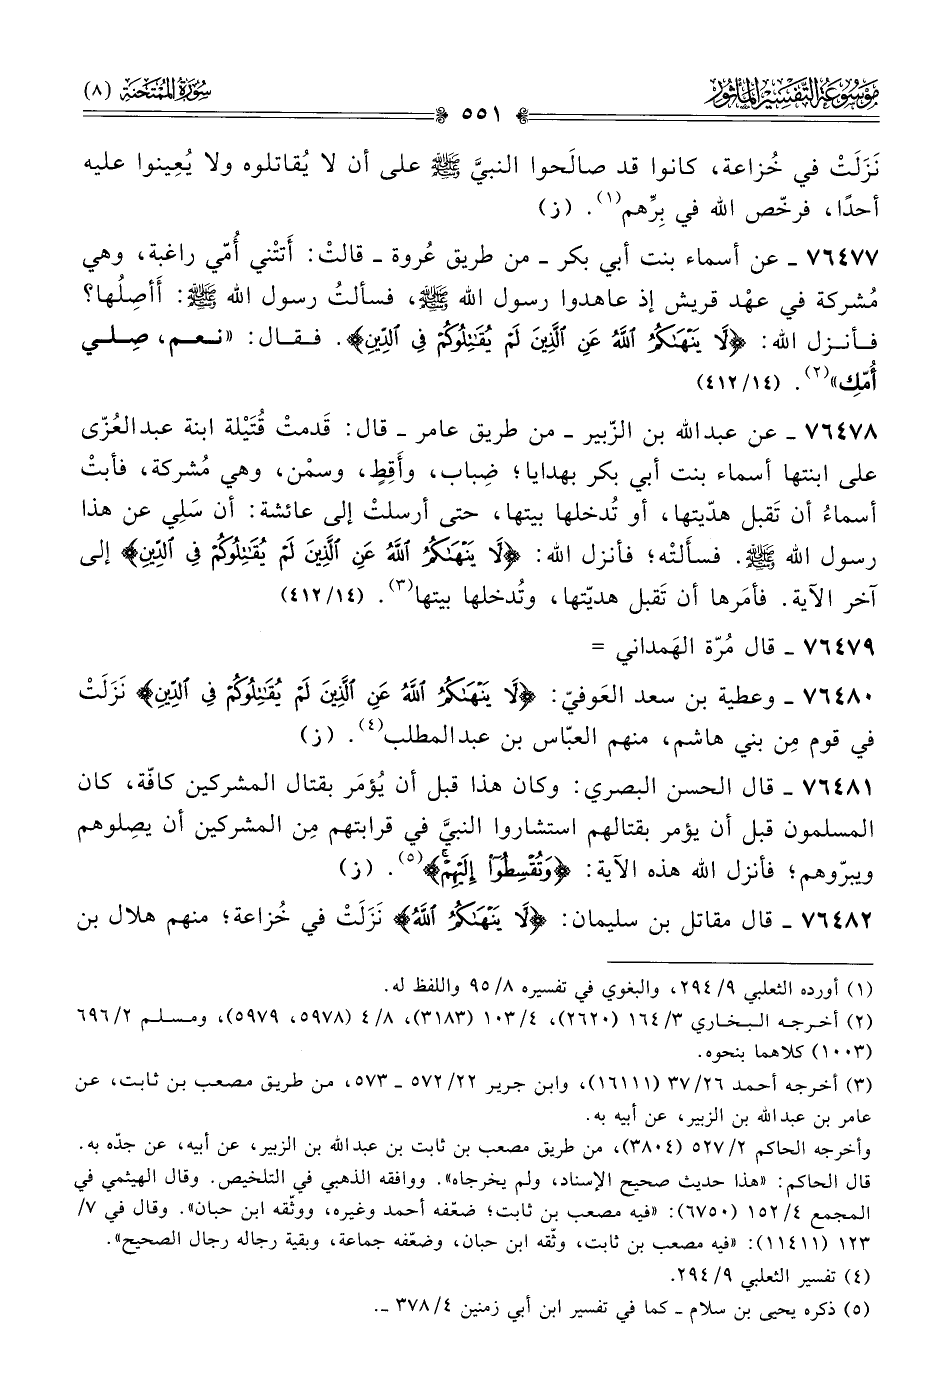 موسوعة التفسير المأثور
سورة الممتحنة (٨)
٥٥١
نَزَلَتْ في خُزاعة، كانوا قد صالَحوا النبيَّ ﷺ على أن لا يُقاتلوه ولا يُعِينوا عليه
أحدًا، فرخّص الله في بِرِّهم(١). (ز)
٧٦٤٧٧ ـ عن أسماء بنت أبي بكر ـ من طريق عُروة ـ قالتْ: أَتتْني أُمّي راغبة، وهي
مُشركة في عهْد قريش إذ عاهدوا رسول الله ﷺ، فسألتُ رسول الله ﷺ: أَأصِلُها؟
فـأنـزل الله: ﴿لَّا يَنْهَىٰكُمُ ٱللَّهُ عَنِ ٱلَّذِينَ لَمْ يُقَٰتِلُوكُمْ فِى ٱلدِّينِ﴾. فـقـال: «نـعـم، صِـلـي
أُمّكِ»(٢). (٤١٢/١٤)
٧٦٤٧٨ ـ عن عبدالله بن الزّبير ـ من طريق عامر ـ قال: قَدمتْ قُتَيْلة ابنة عبدالعُزّى
على ابنتها أسماء بنت أبي بكر بهدايا؛ ضِباب، وأَقِطٍ، وسمْن، وهي مُشركة، فأبتْ
أسماءُ أن تَقبل هدّيتها، أو تُدخلها بيتها، حتى أرسلتْ إلى عائشة: أن سَلِي عن هذا
رسول الله ﷺ. فسألتْه؛ فأنزل الله: ﴿لَّا يَنْهَىٰكُمُ ٱللَّهُ عَنِ ٱلَّذِينَ لَمْ يُقَٰتِلُوكُمْ فِى ٱلدِّينِ﴾ إلى
آخر الآية. فأمَرها أن تَقبل هديّتها، وتُدخلها بيتها(٣). (٤١٢/١٤)
٧٦٤٧٩ ـ قال مُرّة الهَمداني =
٧٦٤٨٠ ـ وعطية بن سعد العَوفيّ: ﴿لَّا يَنْهَىٰكُمُ ٱللَّهُ عَنِ ٱلَّذِينَ لَمْ يُقَٰتِلُوكُمْ فِى ٱلدِّينِ﴾ نَزَلَتْ
في قوم مِن بني هاشم، منهم العبّاس بن عبدالمطلب(٤). (ز)
٧٦٤٨١ ـ قال الحسن البصري: وكان هذا قبل أن يُؤمَر بقتال المشركين كافّة، كان
المسلمون قبل أن يؤمر بقتالهم استشاروا النبيَّ في قرابتهم مِن المشركين أن يصِلوهم
ويبرّوهم؛ فأنزل الله هذه الآية: ﴿وَتُقْسِطُوٓا۟ إِلَيْهِمْ﴾(٥). (ز)
٧٦٤٨٢ ـ قال مقاتل بن سليمان: ﴿لَّا يَنْهَىٰكُمُ ٱللَّهُ﴾ نَزَلَتْ في خُزاعة؛ منهم هلال بن
(١) أورده الثعلبي ٢٩٤/٩، والبغوي في تفسيره ٩٥/٨ واللفظ له.
(٢) أخـرجـه الـبـخـاري ١٦٤/٣ (٢٦٢٠)، ١٠٣/٤ (٣١٨٣)، ٤/٨ (٥٩٧٨، ٥٩٧٩)، ومـسـلـم ٦٩٦/٢
(١٠٠٣) كلاهما بنحوه.
(٣) أخرجه أحمد ٣٧/٢٦ (١٦١١١)، وابن جرير ٥٧٢/٢٢ ـ ٥٧٣، من طريق مصعب بن ثابت، عن
عامر بن عبدالله بن الزبير، عن أبيه به.
وأخرجه الحاكم ٥٢٧/٢ (٣٨٠٤)، من طريق مصعب بن ثابت بن عبدالله بن الزبير، عن أبيه، عن جدّه به.
قال الحاكم: «هذا حديث صحيح الإسناد، ولم يخرجاه». ووافقه الذهبي في التلخيص. وقال الهيثمي في
المجمع ١٥٢/٤ (٦٧٥٠): «فيه مصعب بن ثابت؛ ضعّفه أحمد وغيره، ووثّقه ابن حبان». وقال في ٧/
١٢٣ (١١٤١١): «فيه مصعب بن ثابت، وثّقه ابن حبان، وضعّفه جماعة، وبقية رجاله رجال الصحيح».
(٤) تفسير الثعلبي ٢٩٤/٩.
(٥) ذكره يحيى بن سلام ـ كما في تفسير ابن أبي زمنين ٣٧٨/٤ ـ.